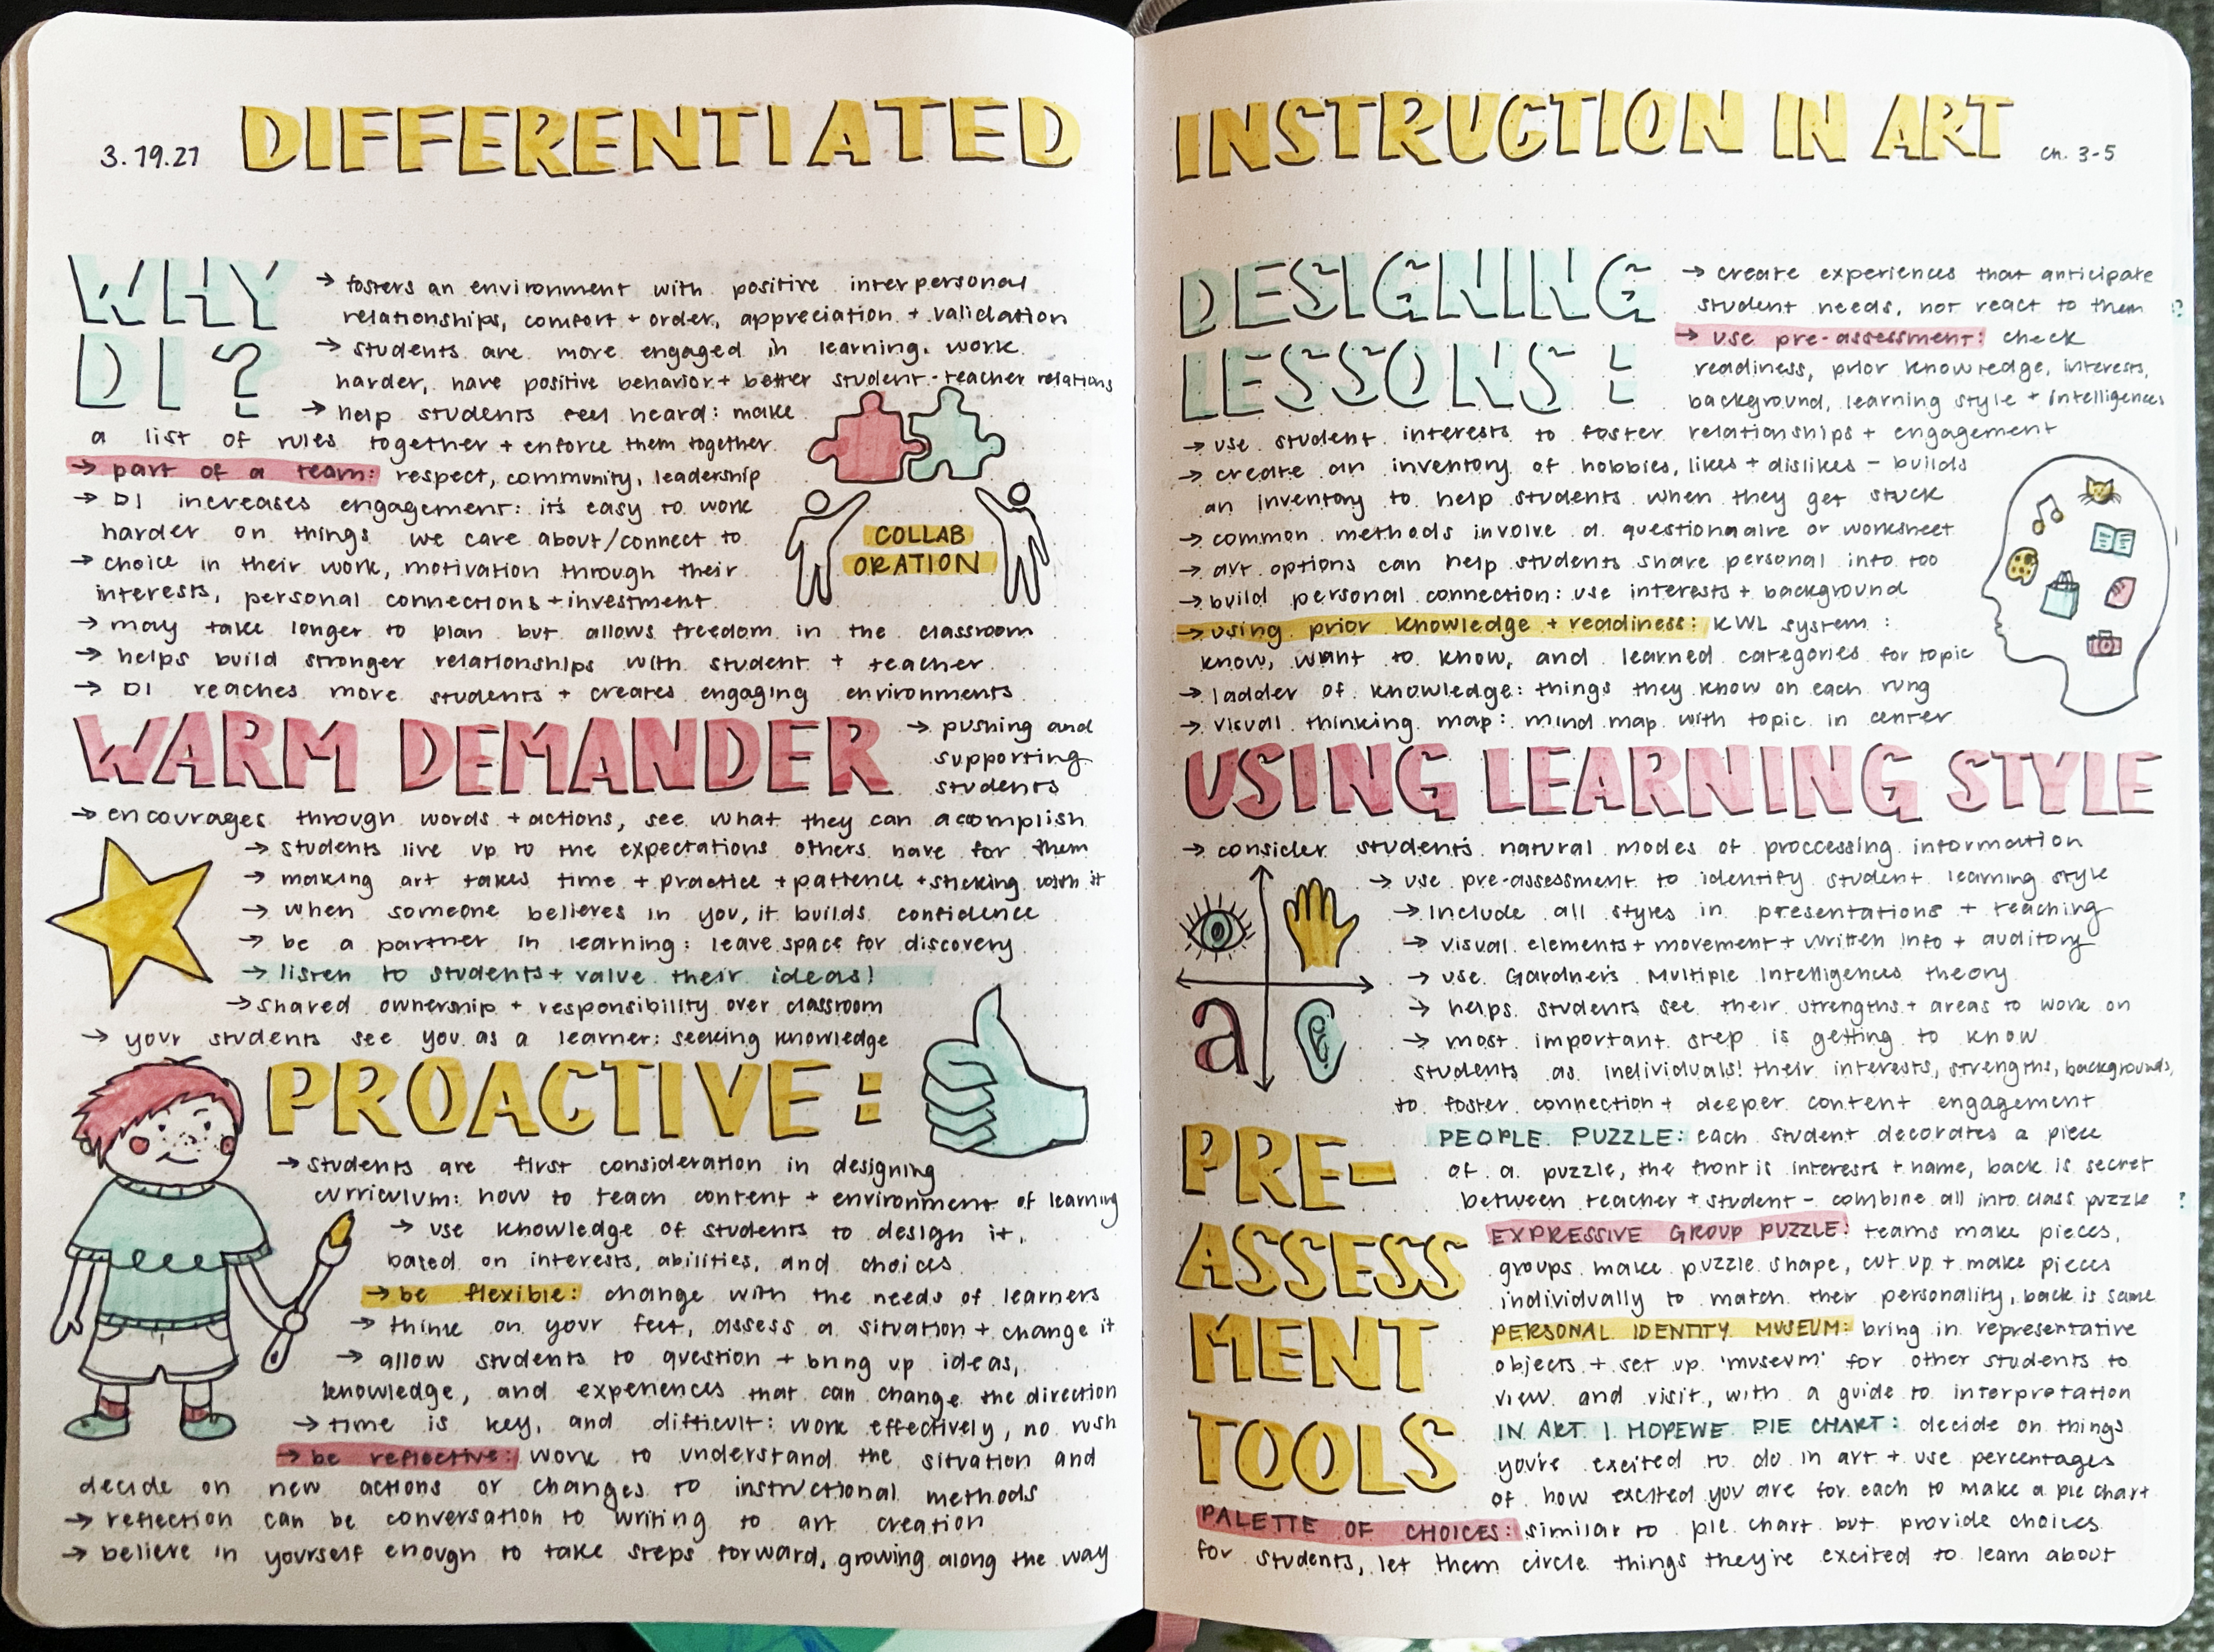 3.19.21
DIFFERENTIATED
WHY
DI?
→ fosters an environment with positive interpersonal
relationships, comfort + order, appreciation + validation
→ students are more engaged in learning, work
harder, have positive behavior + better student-teacher relations
→ help students feel heard: make
a list of rules together + enforce them together
→ part of a team: respect, community, leadership
→ DI increases engagement: it's easy to work
harder on things we care about/connect to
→ choice in their work, motivation through their
interests, personal connections + investment
→ may take longer to plan but allows freedom in the classroom
→ helps build stronger relationships with student + teacher
→ DI reaches more students + creates engaging environments
COLLAB
ORATION
WARM DEMANDER
→ pushing and
supporting
students
→ encourages through words + actions, see what they can acomplish
→ students live up to the expectations others have for them
→ making art takes time + practice + patience + sticking with it
→ when someone believes in you, it builds confidence
→ be a partner in learning: leave space for discovery
→ listen to students + value their ideas!
→ shared ownership + responsibility over classroom
→ your students see you as a learner: seeking knowledge
PROACTIVE:
→ students are first consideration in designing
curriculum: how to teach content + environment of learning
→ use knowledge of students to design it,
based on interests, abilities, and choices
→ be flexible: change with the needs of learners
→ think on your feet, assess a situation + change it
→ allow students to question + bring up ideas,
knowledge, and experiences that can change the direction
→ time is key, and difficult: work effectively, no rush
→ be reflective: work to understand the situation and
decide on new actions or changes to instructional methods
→ reflection can be conversation to writing to art creation
→ believe in yourself enough to take steps forward, growing along the way
INSTRUCTION IN ART
Ch. 3-5
DESIGNING
LESSONS:
→ create experiences that anticipate
student needs, not react to them
→ use pre-assessment: check
readiness, prior knowledge, interests,
background, learning style + intelligences
→ use student interests to foster relationships + engagement
→ create an inventory of hobbies, likes + dislikes - builds
an inventory to help students when they get stuck
→ common methods involve a questionnaire or worksheet
→ art options can help students share personal info too
→ build personal connection: use interests + background
→ using prior knowledge + readiness: KWL system:
know, want to know, and learned categories for topic
→ ladder of knowledge: things they know on each rung
→ visual thinking map: mind map with topic in center
USING LEARNING STYLE
→ consider students natural modes of proccessing information
→ use pre-assessment to identify student learning style
→ include all styles in presentations + teaching
→ visual elements + movement + written info + auditory
→ use Gardner's Multiple Intelligences theory
→ helps students see their strengths + areas to work on
→ most important step is getting to know
students as individuals! their interests, strengths, backgrounds,
to foster connection + deeper content engagement
a
PRE-
ASSESS
MENT
TOOLS
PEOPLE PUZZLE: each student decorates a piece
of a puzzle, the front is interests + name, back is secret
between teacher + student - combine all into class puzzle
EXPRESSIVE GROUP PUZZLE: teams make pieces,
groups make puzzle shape, cut up + make pieces
individually to match their personality, back is same
PERSONAL IDENTITY MUSEUM: bring in representative
objects + set up 'museum' for other students to
view and visit, with a guide to interpretation
IN ART I HOPEWE PIE CHART: decide on things
you're excited to do in art + use percentages
of how excited you are for each to make a pie chart
PALETTE OF CHOICES: similar to pie chart but provide choices
for students, let them circle things they're excited to learn about